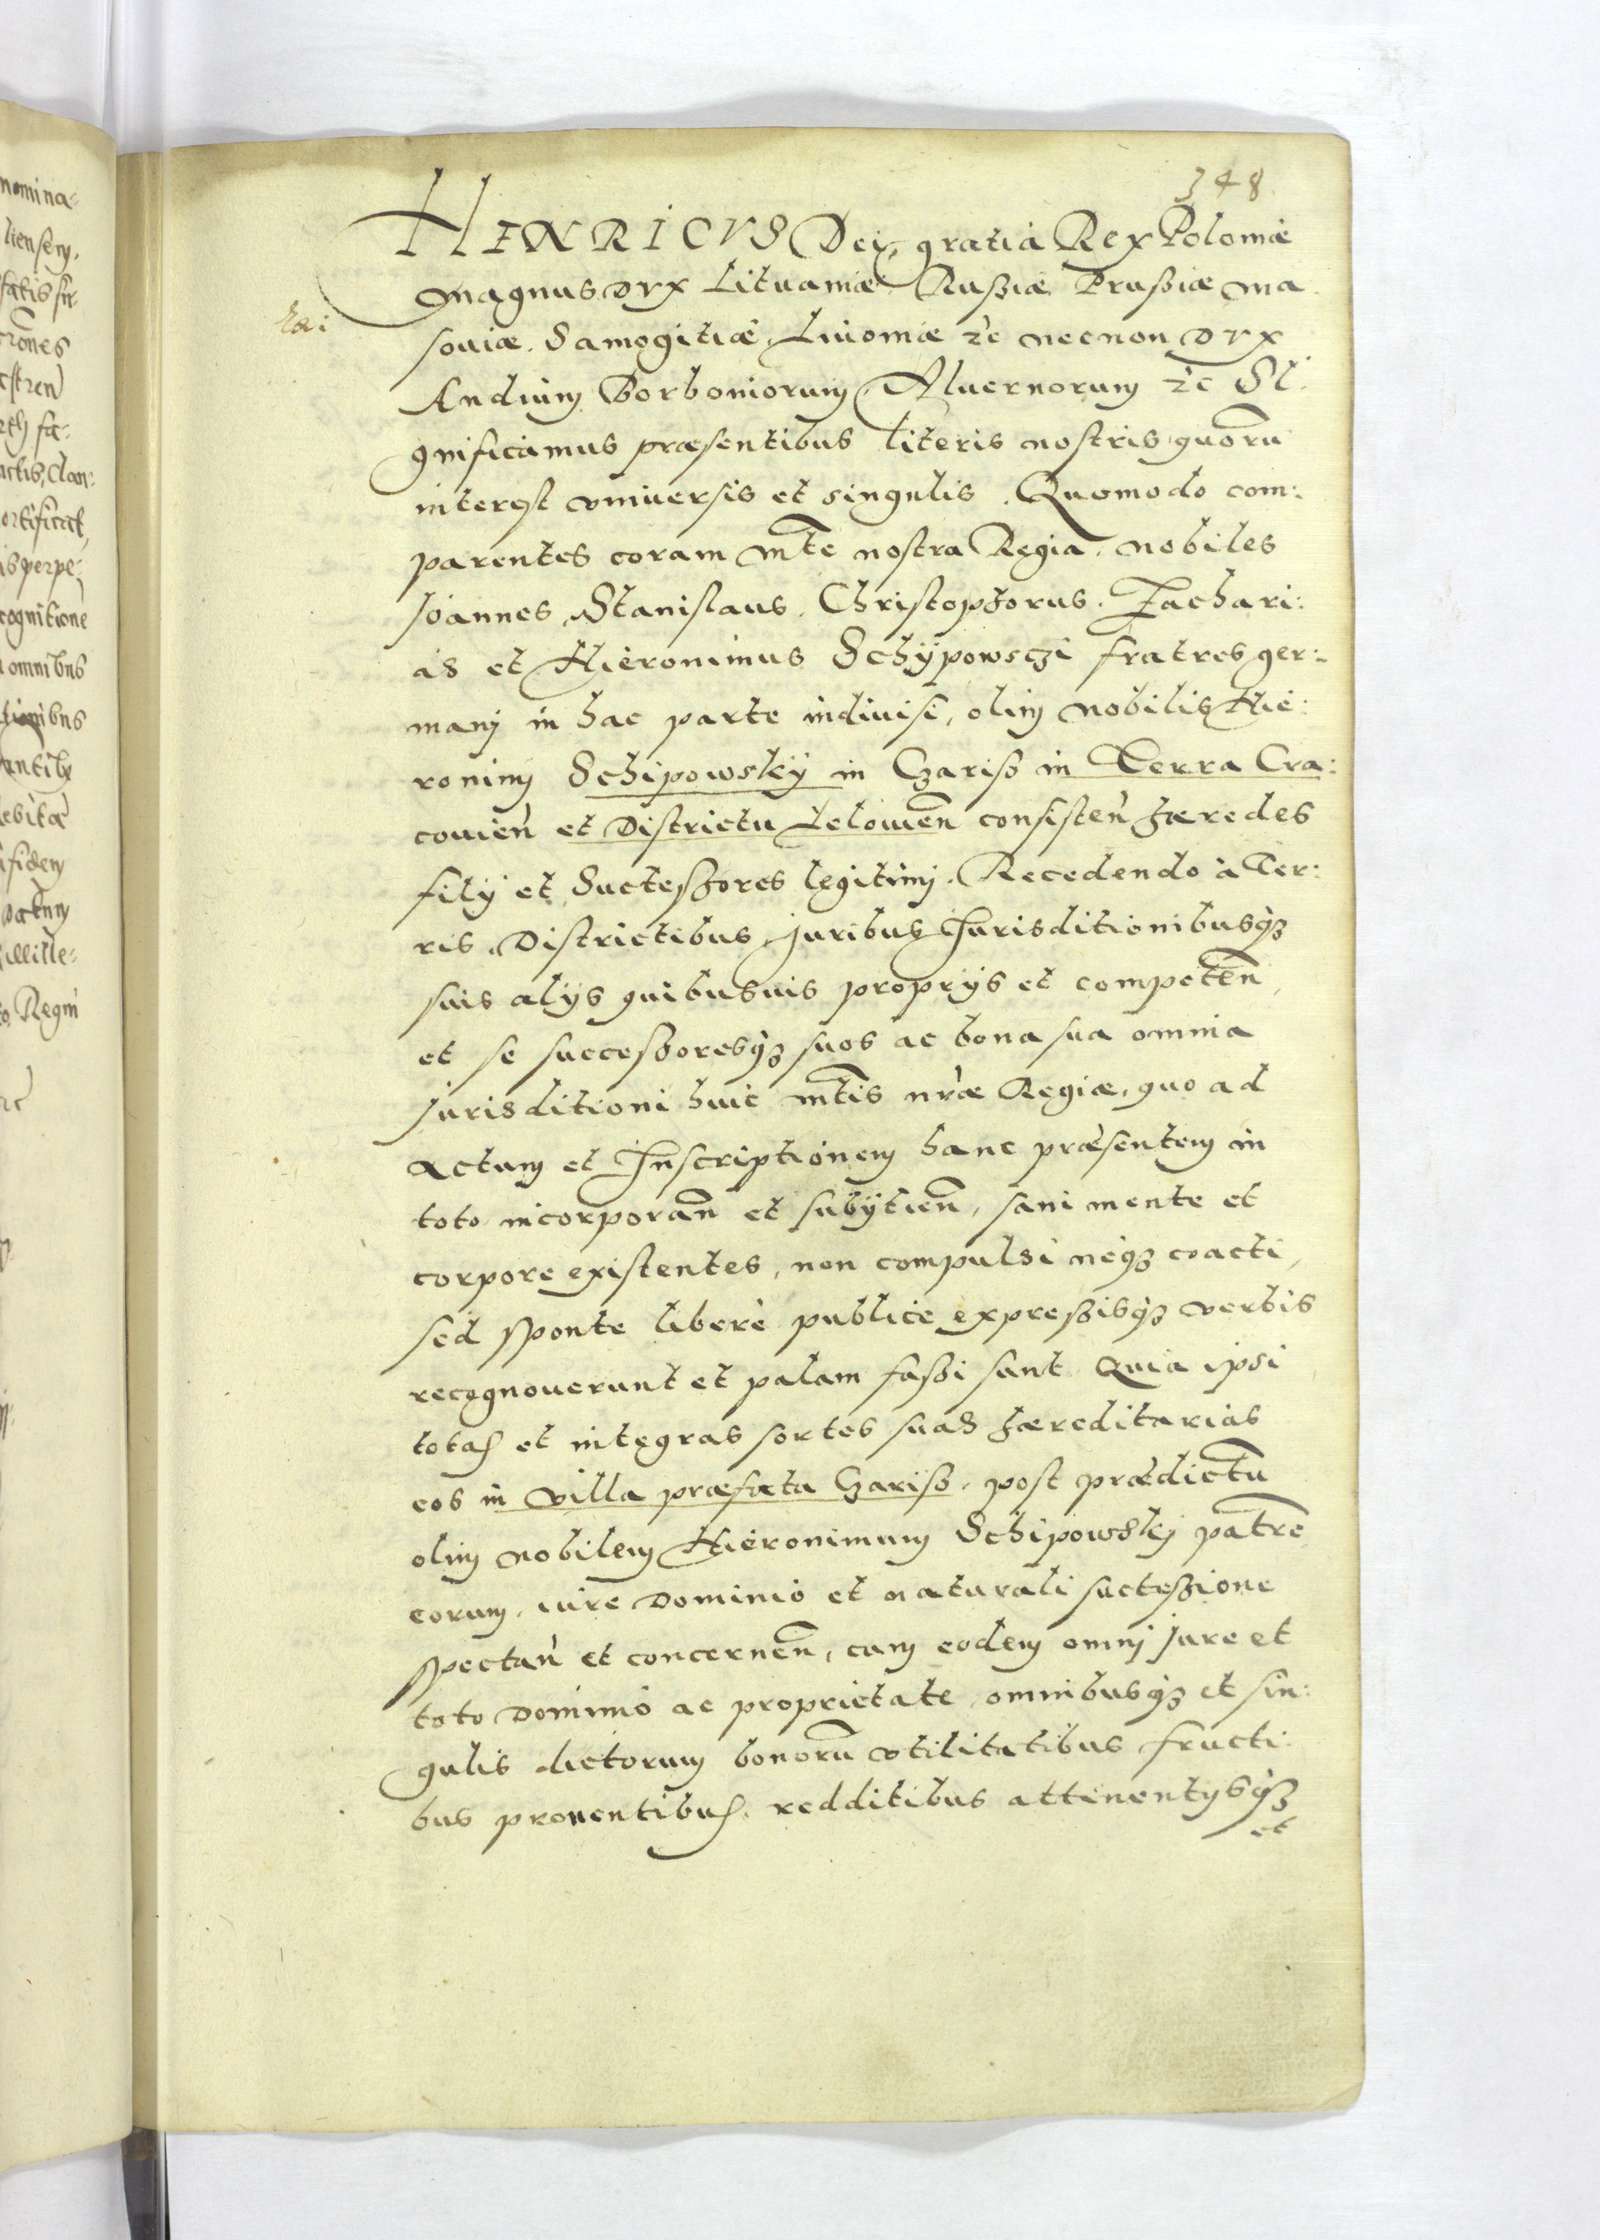 348
HENRICVS Dei gratia Rex Poloniæ
Magnus Dvx Lituaniæ Rußiæ Prußiæ Ma
soviæ Samogitiæ Liuoniæ ꝛc necnon Dvx
Andium Borboniorum Aluernorum ꝛc Si:
gnificamus præsentibus literis nostris quorū
interest vniuersis et singulis. Quomodo com:
parentes coram Mt̃e nostra Regia nobiles
Joannes, Stanislaus, Christophorus, Zachari:
as et Hieronimus Schÿpowsczi fratres ger:
manj in hac parte indiuisi, olim nobilis Hie:
ronimj Schipowskÿ in Czariß in Terra Cra:
couien̄ et Districtu Lelouien̄ consisten̄ hæredes
filÿ et Suctessores legitimj. Recedendo à Ter:
ris Districtibus, Juribus Jurisditionibusqʒ
suis alÿs quibusuis proprÿs et competen̄
et se succeßoresqʒ suos ac bona sua omnia
Jurisditioni huic Mt̃is nr̃æ Regiæ, quo ad
actum et Inscriptionem hanc præsentem in
toto incorporan̄ et subÿtien̄, sani mente et
corpore existentes, non compulsi neqʒ coacti,
sed sponte liberè publice expreßisqʒ verbis
recognouerunt et palam faßi sunt Quia ipsi
totas et integras sortes suas hæreditarias
eos in villa præfata Czariß, post prædictū
olim nobilem Hieronimum Schipowskj patrē
eorum, iure Dominio et naturali suctessione
spectan̄ et concernen̄, cum eodem omnj Jure et
toto Dominio ac proprietate omnibusqʒ et sin:
gulis dictorum bonorū vtilitatibus fructi:
bus prouentibus, redditibus attinentÿsqʒ
et